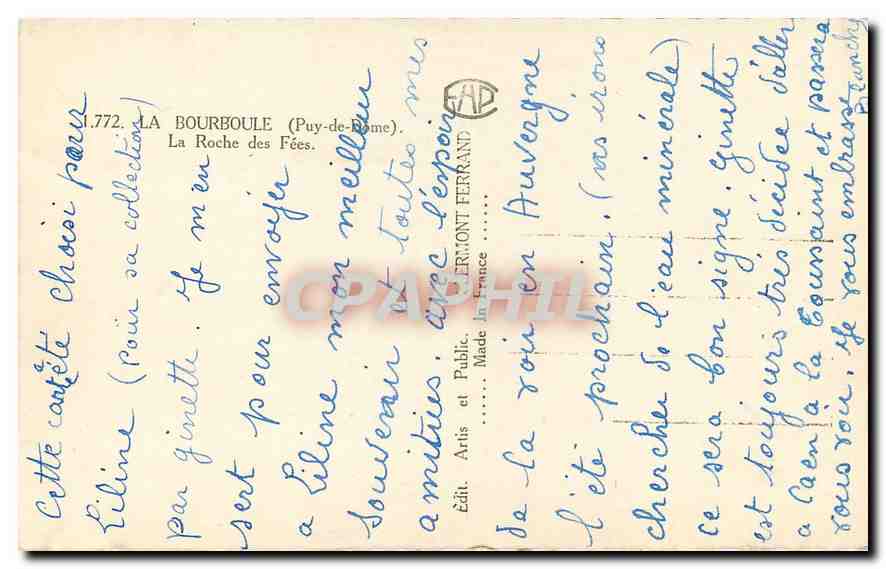 1.772. LA BOURBOULE (Puy-de-Dôme).
La Roche des Fées.
EAP
Édit. Artis et Public. CLERMONT FERRAND
...... Made In France ......
CPAPHIL
Cette carte a été choisi pour
Liline (pour sa collection)
par ginette. Je m'en
sert pour envoyer
a Liline mon meilleur
souvenir et toutes mes
amitiés. avec l'espoir
de la voir en Auvergne
l'été prochain. (vs irons
chercher de l'eau minérale)
ce sera bon signe. ginette
est toujours très décidée d'aller
a Caen à la Toussaint et passera
vous voir. Je vous embrasse
Blanche